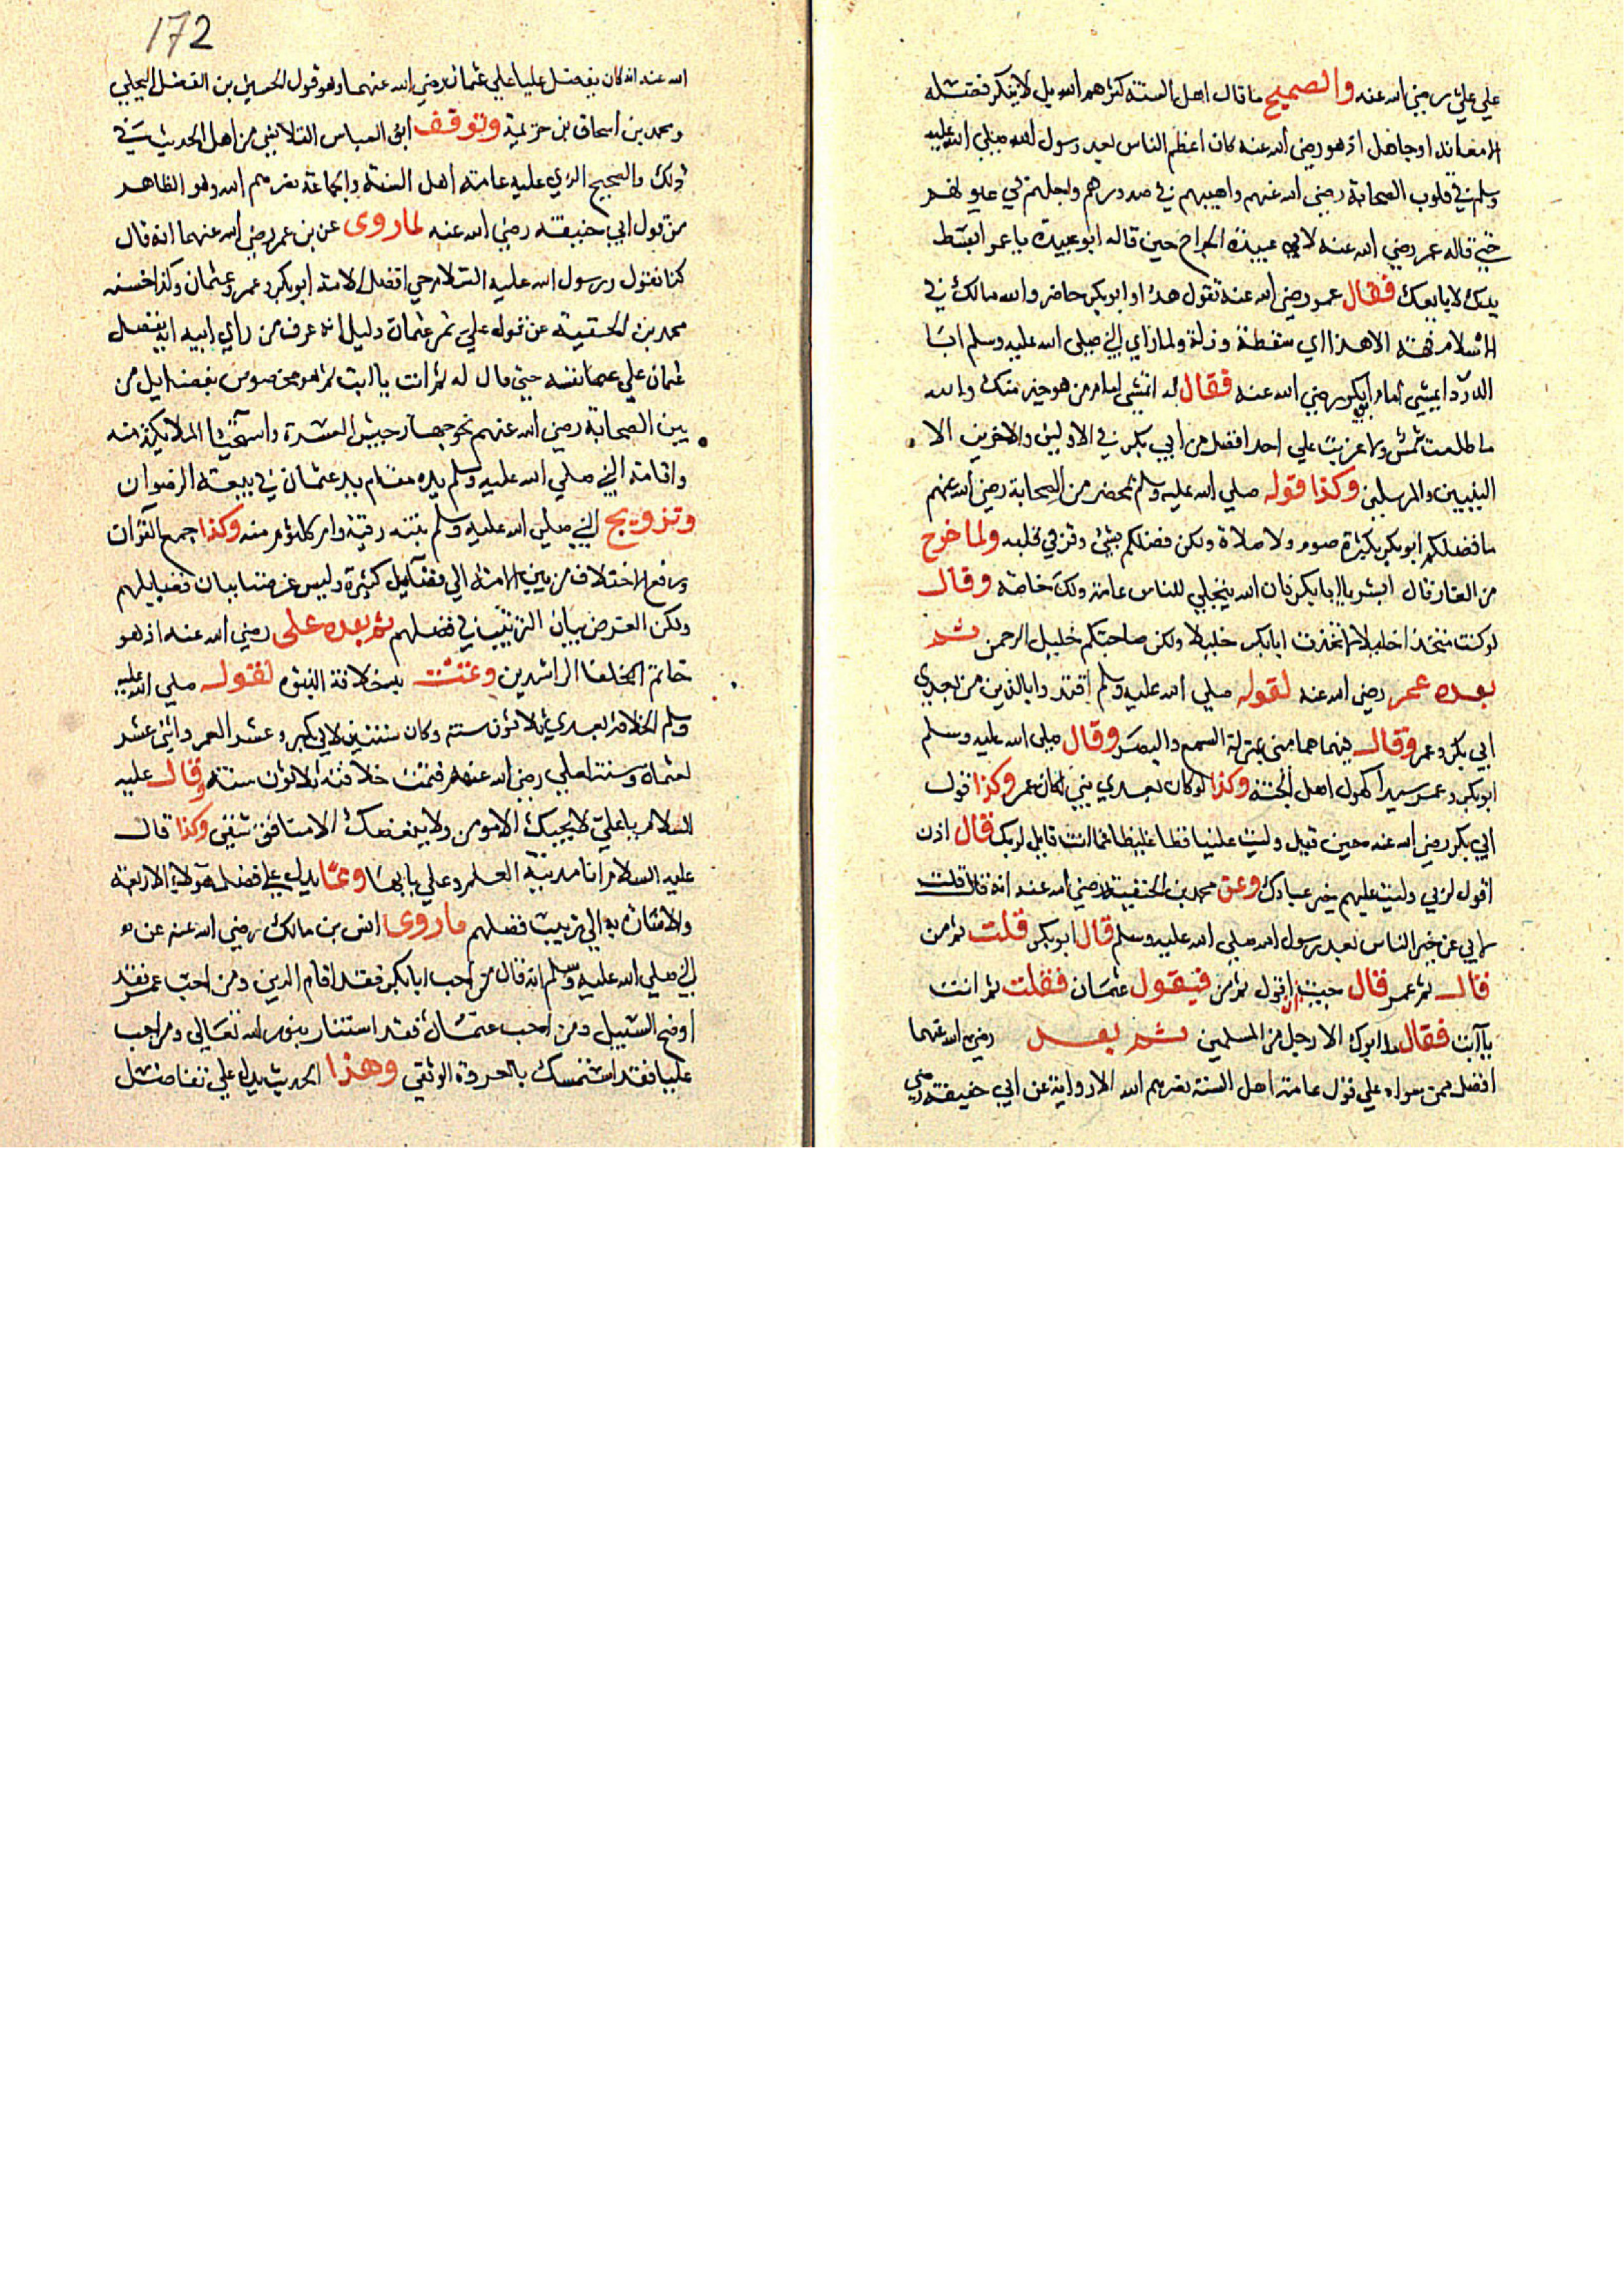 علي علي رضي الله عنه والصحيح ما قال اهل السنة كثرهم الله بل لا ينكر فضله
الا معاند او جاهل اذ هو رضي الله عنه كان اعظم الناس بعد رسول الله صلي الله عليه
وسلم في قلوب الصحابة رضي الله عنهم واهيبهم في صدورهم واجلهم في عيونهم
حتي قاله عمر رضي الله عنه لابي عبيدة الجراح حين قاله ابو عبيدة يا عمر ابسط
يدك لابايعك فقال عمر رضي الله عنه تقول هذا وابو بكر حاضر والله مالك في
الاسلام فهة الا هذا اي سقطة وزلة ولما راي النبي صلى الله عليه وسلم ابا
الدردا يمشي امام ابي بكر رضي الله عنه فقال له اتمشي امام من هو خير منك والله
ما طلعت شمس ولا غربت علي احد افضل من ابي بكر في الاولين والاخرين الا
النبيين والمرسلين وكذا قوله صلي الله عليه وسلم بمحضر من الصحابة رضي الله عنهم
ما فضلكم ابو بكر بكثرة صوم ولا صلاة ولكن فضلكم بشئ وقر في قلبه ولما خرج
من الغار قال ابشر يا ابا بكر فان الله يتجلي للناس عامة ولك خاصة وقال
لو كنت متخذا خليلا لاتخذت ابا بكر خليلا ولكن صاحبكم خليل الرحمن ثم
بعده عمر رضي الله عنه لقوله صلي الله عليه وسلم اقتدوا بالذين من بعدي
ابي بكر وعمر وقال فيهما هما مني بمنزلة السمع والبصر وقال صلى الله عليه وسلم
ابو بكر وعمر سيدا كهول اهل الجنة وكذا لو كان بعدي نبي لكان عمر وكذا قول
ابي بكر رضي الله عنه حين قيل وليت علينا فظا غليظا فما انت قايل لربك قال اذن
اقول لربي وليت عليهم خير عبادك وعن محمد بن الحنفية رضي الله عنه انه قال قلت
لابي عن خير الناس بعد رسول الله صلي الله عليه وسلم قال ابو بكر قلت ثم من
قال ثم عمر قال خشيت ان اقول ثم من فيقول عثمان فقلت ثم انت
يا ابت فقال ما ابوك الا رجل من المسلمين ثم بعد رضي الله عنهما
افضل ممن سواه علي قول عامة اهل السنة نصرهم الله الا رواية عن ابي حنيفة رضي
172
الله عنه انه كان يفضل عليا علي عثمان رضي الله عنهما وهو قول الحسين بن الفضل البجلي
ومحمد بن اسحاق بن خزيمة وتوقف ابو العباس القلانسي من اهل الحديث في
ذلك والصحيح الذي عليه عامة اهل السنة والجماعة نصرهم الله وهو الظاهر
من قول ابي حنيفة رضي الله عنه لما روى عن بن عمر رضي الله عنهما انه قال
كنا نقول ورسول الله عليه السلام حي افضل الامة ابو بكر وعمر وعثمان وكذا خشية
محمد بن الحنفية عن قوله علي ثم عثمان دليل انه عرف من راي ابيه انه يفضل
عثمان علي نفسه حتي قال له ثم انت يا ابت ثم هو مخصوص بفضايل من
بين الصحابة رضي الله عنهم نحو جهاز جيش العسرة واستحيا الملايكة منه
واقامة النبي صلي الله عليه وسلم يده مقام يد عثمان في بيعة الرضوان
وتزويج النبي صلي الله عليه وسلم بنته رقية وام كلثوم منه وكذا جمع القران
ورفع الاختلاف من بين الامة الي فضايل كثيرة وليس غرضنا بيان فضايلهم
ولكن الغرض بيان الترتيب في فضلهم ثم بعده علي رضي الله عنه اذ هو
خاتم الخلفا الراشدين وتمت به خلافة النبوة لقوله صلي الله عليه
وسلم الخلافة بعدي ثلاثون سنة وكان سنتين لابي بكر وعشر لعمر واثني عشر
لعثمان وستة لعلي رضي الله عنهم فتمت خلافته ثلاثون سنة وقال عليه
السلام يا علي لا يحبك الا مومن ولا يبغضك الا منافق شقي وكذا قال
عليه السلام انا مدينة العلم وعلي بابها ومما يدل علي فضل هولاء الاربعة
والاشارة به الي ترتيب فضلهم ما روى انس بن مالك رضي الله عنه عن
النبي صلي الله عليه وسلم انه قال من احب ابا بكر فقد اقام الدين ومن احب عمر فقد
اوضح السبيل ومن احب عثمان فقد استنار بنور الله تعالي ومن احب
عليا فقد استمسك بالعروة الوثقي وهذا الحديث يدل علي تفاضل